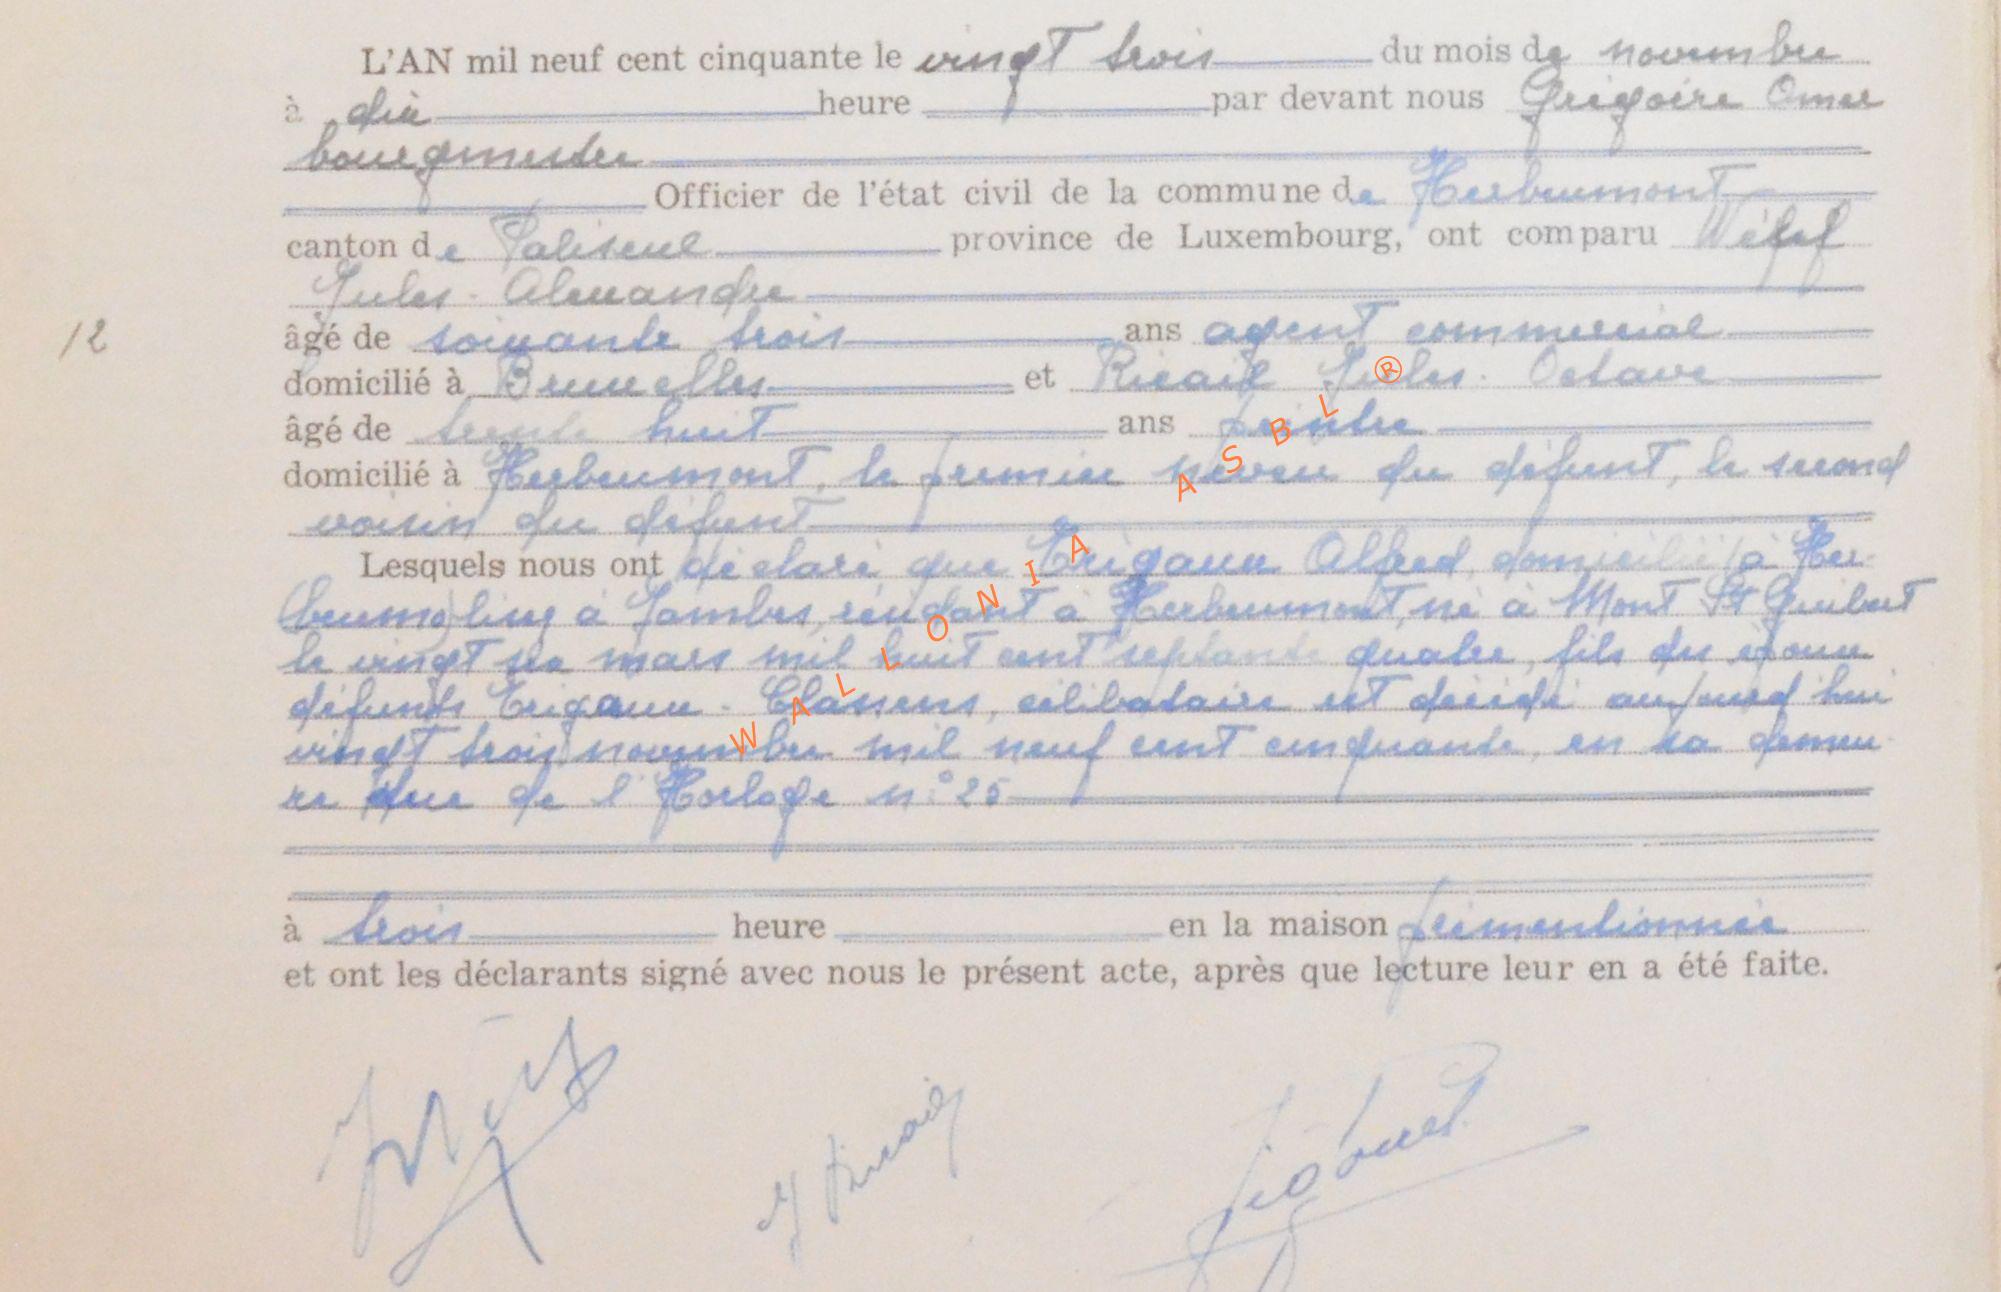 L'AN mil neuf cent cinquante le vingt trois du mois de novembre
à dix heure par devant nous Grégoire Omer
bourgmestre
Officier de l'état civil de la commune de Herbeumont
canton de Paliseul province de Luxembourg, ont comparu
Jules - Alexandre
12
âgé de soixante trois ans agent commercial
domicilié à Bruxelles et Ricail Jules - Octave
âgé de trente huit ans peintre
domicilié à Herbeumont, le premier neveu du défunt, le second
voisin du défunt
Lesquels nous ont déclaré que Trigaux Alfred, domicilié à Her-
à Jambes, résidant à Herbeumont, né à Mont St Guibert
le vingt six mars mil huit cent septante quatre, fils des époux
défunts Trigaux - Classens, célibataire est décédé aujourd'hui
vingt trois novembre mil neuf cent cinquante, en sa demeu-
re rue de l'Horloge n° 25
à trois heure en la maison prémentionnée
et ont les déclarants signé avec nous le présent acte, après que lecture leur en a été faite.
J Ricail
WALLONIA ASBL®